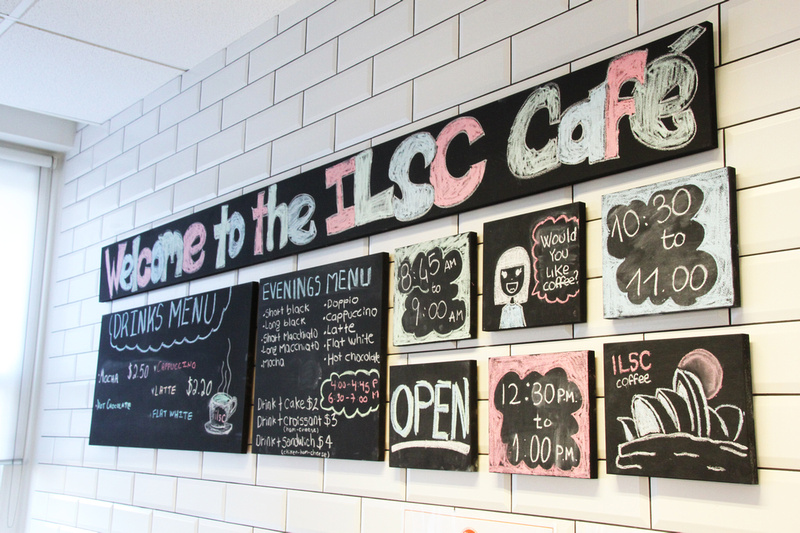 Welcome to the ILSC Café
DRINKS MENU
MOCHA $2.50 CAPPUCCINO
LATTE $2.20
HOT CHOCOLATE
FLAT WHITE
ILSC
EVENINGS MENU
• Short black
• Long black
• Short Macchiato
• Long macchiato
• Mocha
• Doppio
• Cappuccino
• Latte
• Flat white
• Hot chocolate
4:00-4:45 PM
6:30-7:00 PM
Drink + Cake $2
Drink + Croissant $3
(ham-cheese)
Drink + Sandwich $4
8:45 AM
to
9:00 AM
WOULD
YOU
LiKE
COFFEE?
10:30
to
11.00
OPEN
12:30 P.M.
to
1:00 P.M.
ILSC
COFFEE